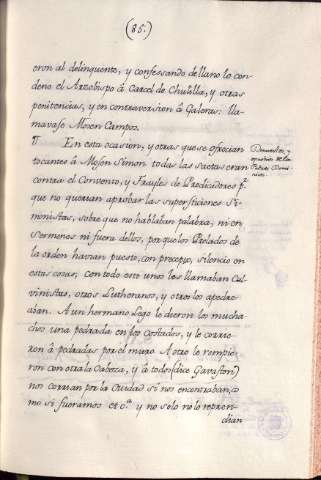 (85.)
eron al delinquente, y confessando de llano lo con-
denó el Arzobispo â Carcel de Chulilla, y otras
penitencias, y en contraversion â Galeras: lla-
mavase Mosen Campos.
¶ En esta ocasion, y otras que se ofrecian
tocantes â Mosen Simon todas las saetas eran
contra el Convento, y Frayles de Predicadores p.r
que no querian aprobar las supersticiones Si-
monistas, sobre que no hablaban palabra, ni en
Sermones ni fuera dellos, por que los Prelados de
la orden havian puesto, con precepto, silencio en
estas cosas, con todo esto unos les llamaban Cal-
vinistas, otros Lutheranos, y otros los apedre-
aban. A un hermano Lego le dieron los mucha-
chos una pedrada en los costados, y le corrie-
ron â pedradas por el muro A otro le rompie-
ron con otra la Cabeza, y (â todos (dice Gavaston)
nos corrian por la Ciudad si nos encontraban, co
mo si fueramos et c.a y no solo no lo repren-
dian